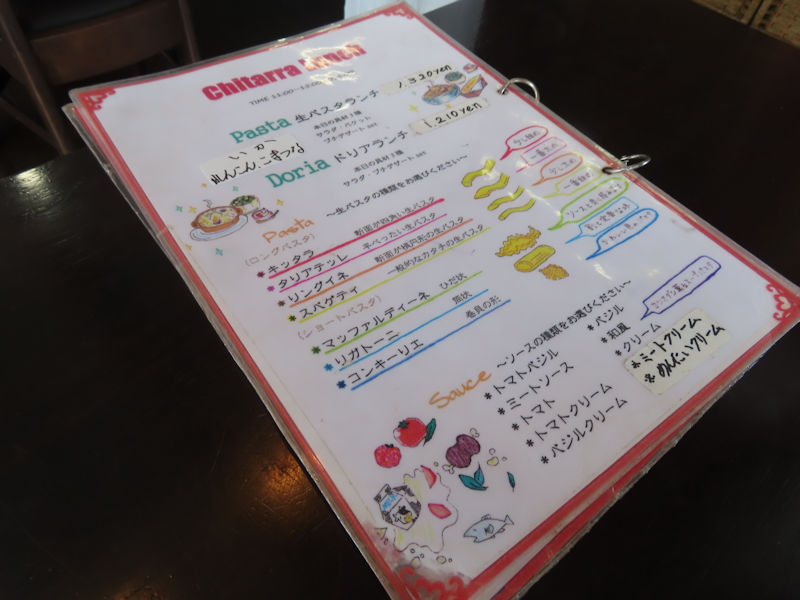 Chitarra Lunch
Pasta 生パスタランチ 1,320yen
本日の具材3種
サラダ・バケット
プチデザート SET
Doria ドリアランチ 1,210yen
本日の具材3種
サラダ・プチデザート SET
～生パスタの種類をお選びください～
Pasta
(ロングパスタ)
*キッタラ 断面が四角い生パスタ
*タリアテッレ 平べったい生パスタ
*リングイネ 断面が楕円形の生パスタ
*スパゲティ 一般的なカタチの生パスタ
(ショートパスタ)
*マッファルディーネ ひだ状
*リガトーニ 筒状
*コンキーリエ 巻貝の形
～ソースの種類をお選びください～
Sauce
*トマトバジル
*ミートソース
*トマト
*トマトクリーム
*バジルクリーム
*バジル
*和風
*クリーム
*ミートクリーム
*めんたいクリーム